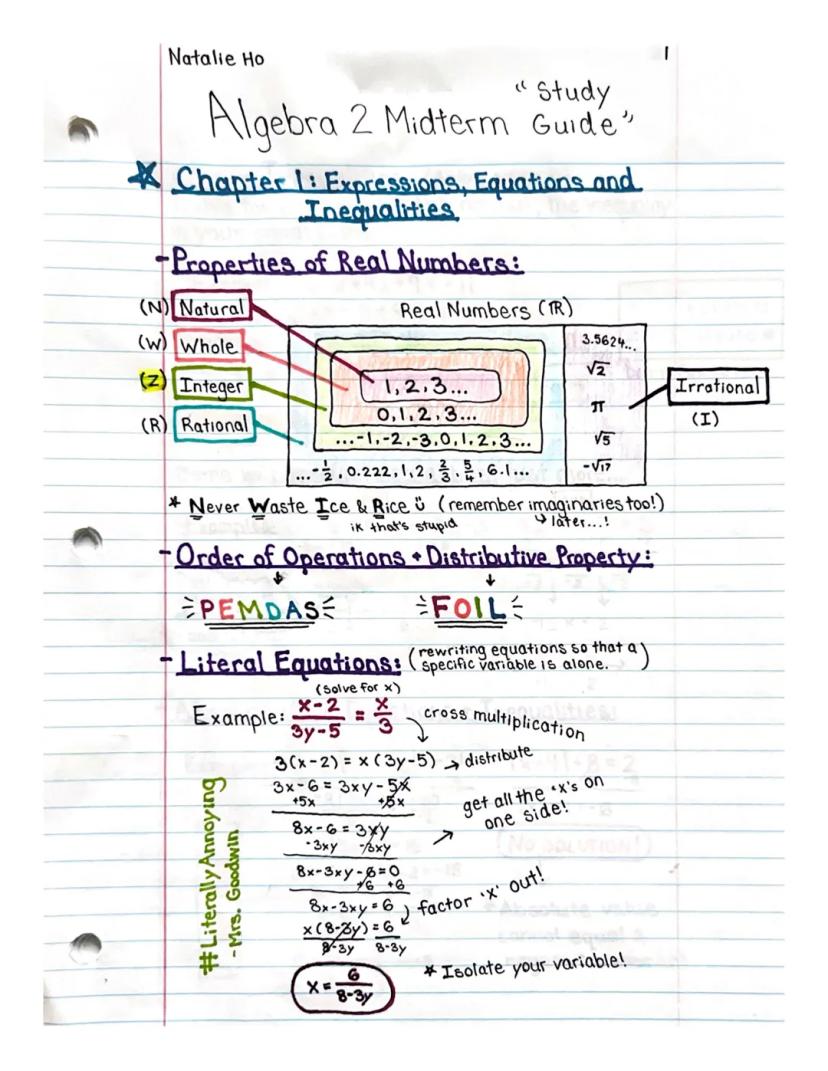 Natalie Ho
1
Algebra 2 Midterm "Study Guide"
Chapter 1: Expressions, Equations and
Inequalities
-Properties of Real Numbers:
(N) Natural
Real Numbers (ℝ)
(W) Whole
(Z) Integer
(R) Rational
1, 2, 3...
0, 1, 2, 3...
...-1, -2, -3, 0, 1, 2, 3...
...-1/2, 0.222, 1, 2, 2/3, 5/4, 6.1...
3.5624...
√2
π
√5
-√17
Irrational
(I)
* Never Waste Ice & Rice ü (remember imaginaries too!)
ik that's stupid
↳ later...!
-Order of Operations + Distributive Property:
↓ ↓
PEMDAS FOIL
-Literal Equations: (rewriting equations so that a
specific variable is alone.)
(solve for x)
Example: x-2/3y-5 = x/3
cross multiplication
3(x-2) = x(3y-5) → distribute
3x-6 = 3xy-5x
+5x +5x
get all the 'x's on
one side!
8x-6 = 3xy
-3xy -3xy
8x-3xy-6=0
+6 +6
8x-3xy=6
factor 'x' out!
x(8-3y) = 6
8-3y 8-3y
x = 6/8-3y
* Isolate your variable!
#LiterallyAnnoying
-Mrs. Goodwin